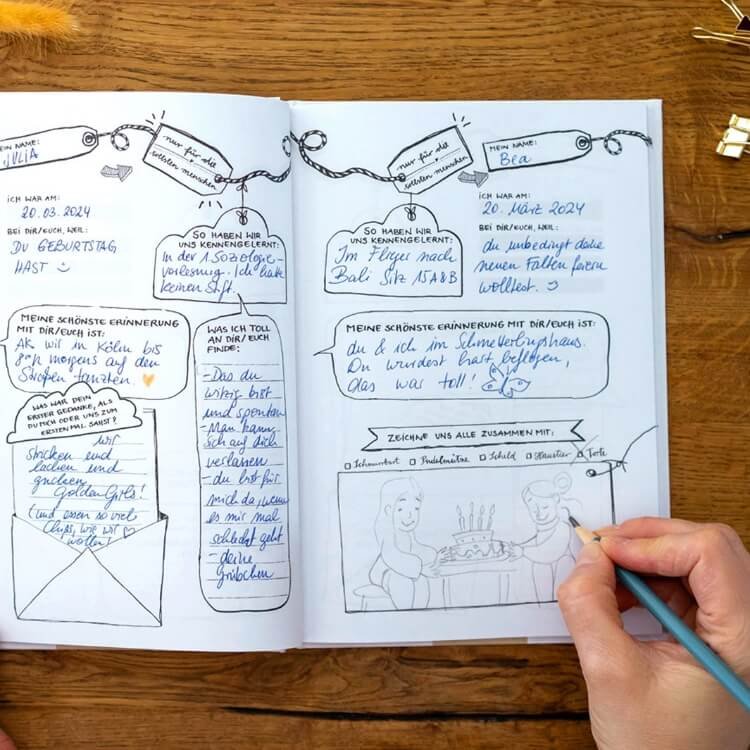 MEIN NAME:
JULIA
nur für die
tollsten menschen
ICH WAR AM:
20.03.2024
BEI DIR/EUCH, WEIL:
DU GEBURTSTAG
HAST
SO HABEN WIR
UNS KENNENGELERNT:
In der 1. Soziologie-
vorlesung. Ich hatte
keinen Stift.
MEINE SCHÖNSTE ERINNERUNG
MIT DIR/EUCH IST:
Als wir in Köln bis
morgens auf den
Straßen tanzten.
WAS WAR DEIN
ERSTER GEDANKE, ALS
DU MICH ODER UNS ZUM
ERSTEN MAL SAHST?
Wir
stricken und
lachen und
gucken
Golden Girls!
(und essen so viele
Chips, wie wir
wollen!
WAS ICH TOLL
AN DIR/EUCH
FINDE:
- Das du
witzig bist
und spontan
- Man kann
sich auf dich
verlassen
- du bist für
mich da, wenn
es mir mal
schlecht geht
- deine
Grübchen
nur für die
tollsten menschen
MEIN NAME:
Bea
ICH WAR AM:
20. März 2024
BEI DIR/EUCH, WEIL:
du unbedingt deine
neuen Falten feiern
wolltest.
SO HABEN WIR
UNS KENNENGELERNT:
Im Flieger nach
Bali Sitz 15A&B
MEINE SCHÖNSTE ERINNERUNG MIT DIR/EUCH IST:
du & ich im Schmetterlingshaus.
Du wurdest hart beflogen,
das war toll!
ZEICHNE UNS ALLE ZUSAMMEN MIT:
Schnurrbart Pudelmütze Schild Haustier Torte